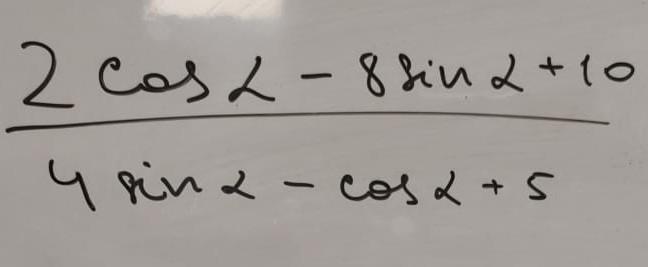 2 cos α - 8 sin α + 10
4 sin α - cos α + 5